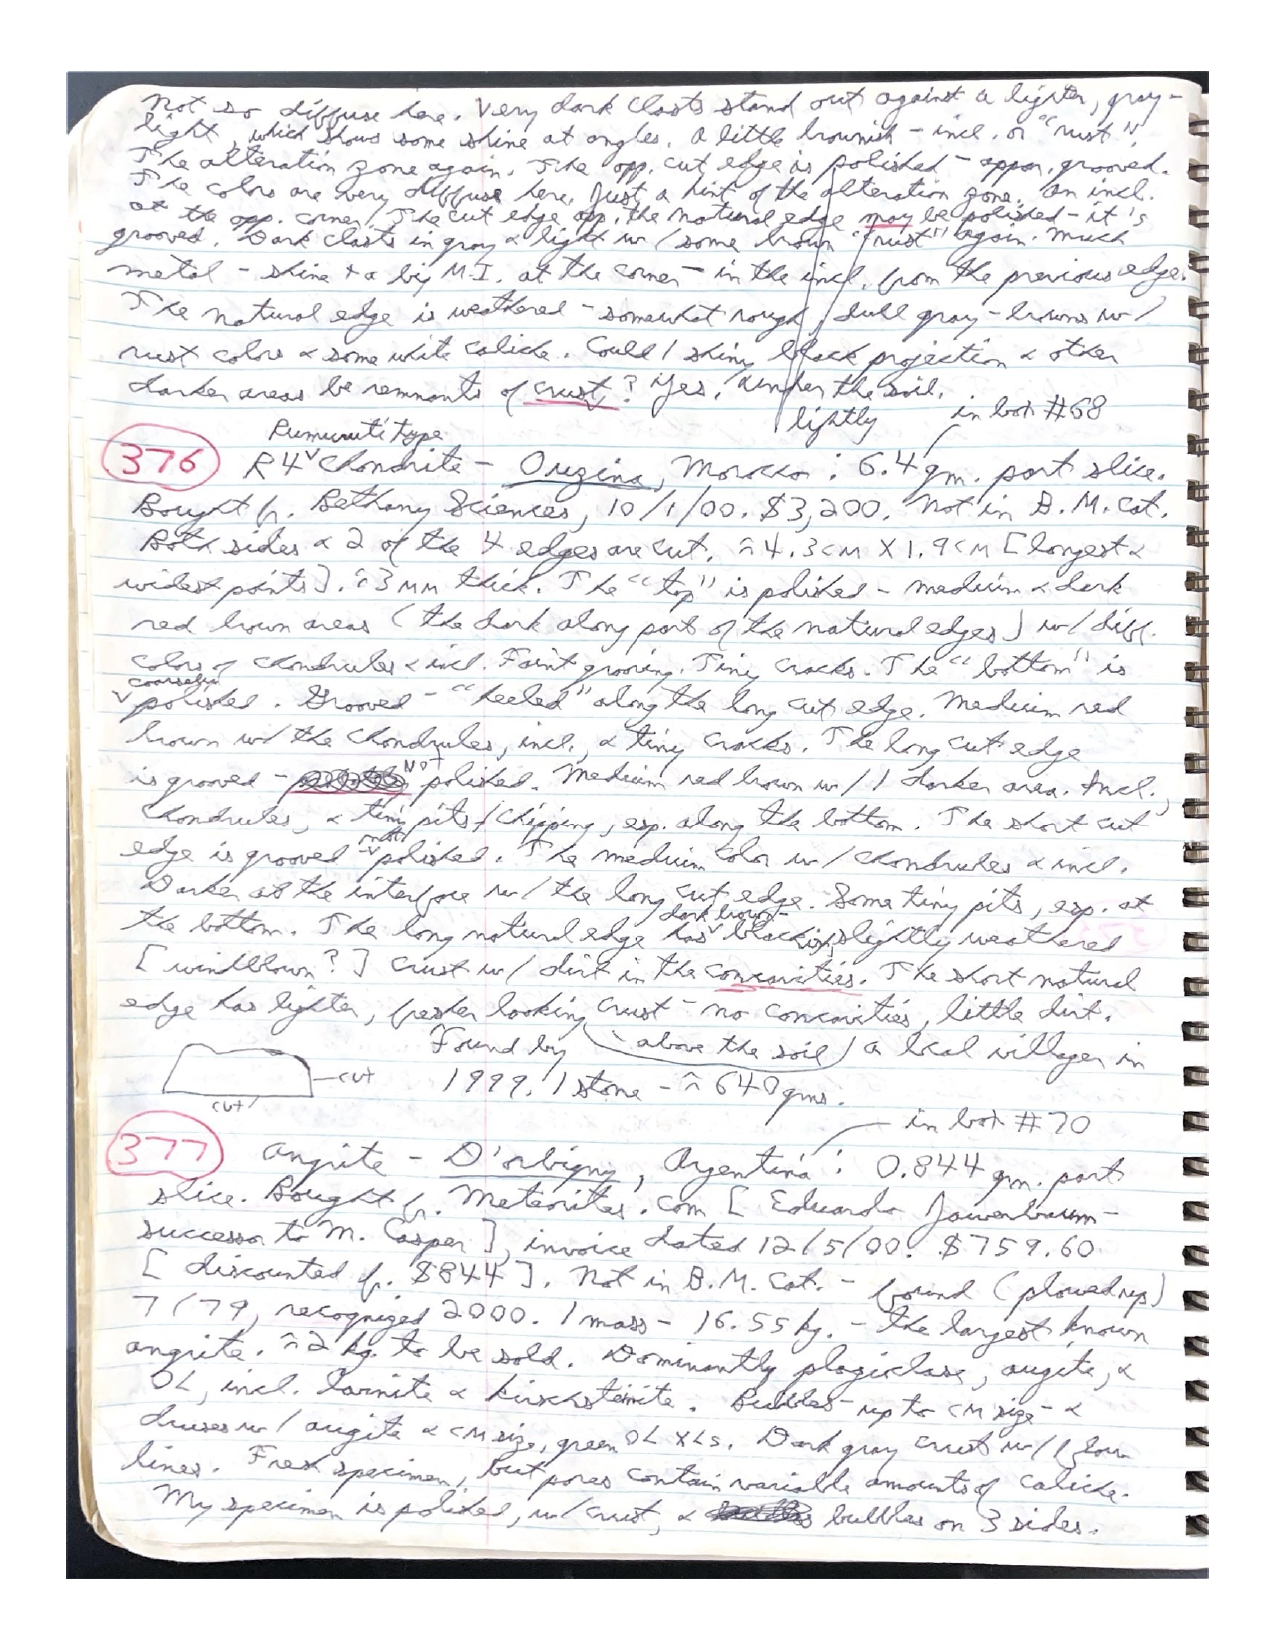 Not so diffuse here. Very dark clasts stand out against a lighter, gray-
light, which shows some shine at angles. A little brownish - incl. or "rust".
The alteration zone again. The opp. cut edge is polished - appar. grooved.
The colors are very diffuse here. Just a hint of the alteration zone. An incl.
at the opp. corner. The cut edge opp. the natural edge may be polished - it's
grooved. Dark clasts in gray & light w/ some brown "rust" again. Much
metal - shine & a big M.I. at the corner - in the incl. from the previous edge.
The natural edge is weathered - somewhat rough, dull gray-browns w/
rust colors & some white caliche. Could 1 shiny black projection & other
darker areas be remnants of crust? Yes, under the soil.
lightly in box #68
Rumuruti type
376 R4 Chondrite - Ouzina, Morocco: 6.4 gm. part slice.
Bought fr. Bethany Sciences, 10/1/00. $3,200. Not in B.M. Cat.
Both sides & 2 of the 4 edges are cut. ≈4.3cm X 1.9cm [longest &
widest points]. ≈3mm thick. The "top" is polished - medium & dark
red brown areas (the dark along part of the natural edges) w/ diff.
colors of chondrules & incl. Faint grooving. Tiny cracks. The "bottom" is
coarsely
polished. Grooved - "heeled" along the long cut edge. Medium red
brown w/ the chondrules, incl., & tiny cracks. The long cut edge
is grooved - NOT polished. Medium red brown w/ 1 darker area. Incl.,
chondrules, & tiny pits/chipping, esp. along the bottom. The short cut
edge is grooved - not polished. The medium color w/ chondrules & incl.
Darker at the interface w/ the long cut edge. Some tiny pits, esp. at
the bottom. The long natural edge has dark brown-blackish, slightly weathered
[windblown?] crust w/ dirt in the concavities. The short natural
edge has lighter, fresher looking crust - no concavities, little dirt.
Found by (above the soil) a local villager in
cut 1999. 1 stone - ≈640 gms.
cut
in box #70
377 Angrite - D'orbigny, Argentina: 0.844 gm. part
slice. Bought fr. Meteorites.com [Eduardo Jawerbaum -
successor to M. Casper], invoice dated 12/5/00. $759.60
[discounted fr. $844]. Not in B.M. Cat. - found (plowed up)
7/79, recognized 2000. 1 mass - 16.55 kg. - the largest known
angrite. ≈2 kg. to be sold. Dominantly plagioclase, augite, &
OL, incl. larnite & kirschsteinite. Bubbles - up to cm size - &
druses w/ augite & cm size, green OL XLs. Dark gray crust w/ flow
lines. Fresh specimen, but pores contain variable amounts of caliche.
My specimen is polished, w/ crust, & bubbles on 3 sides.